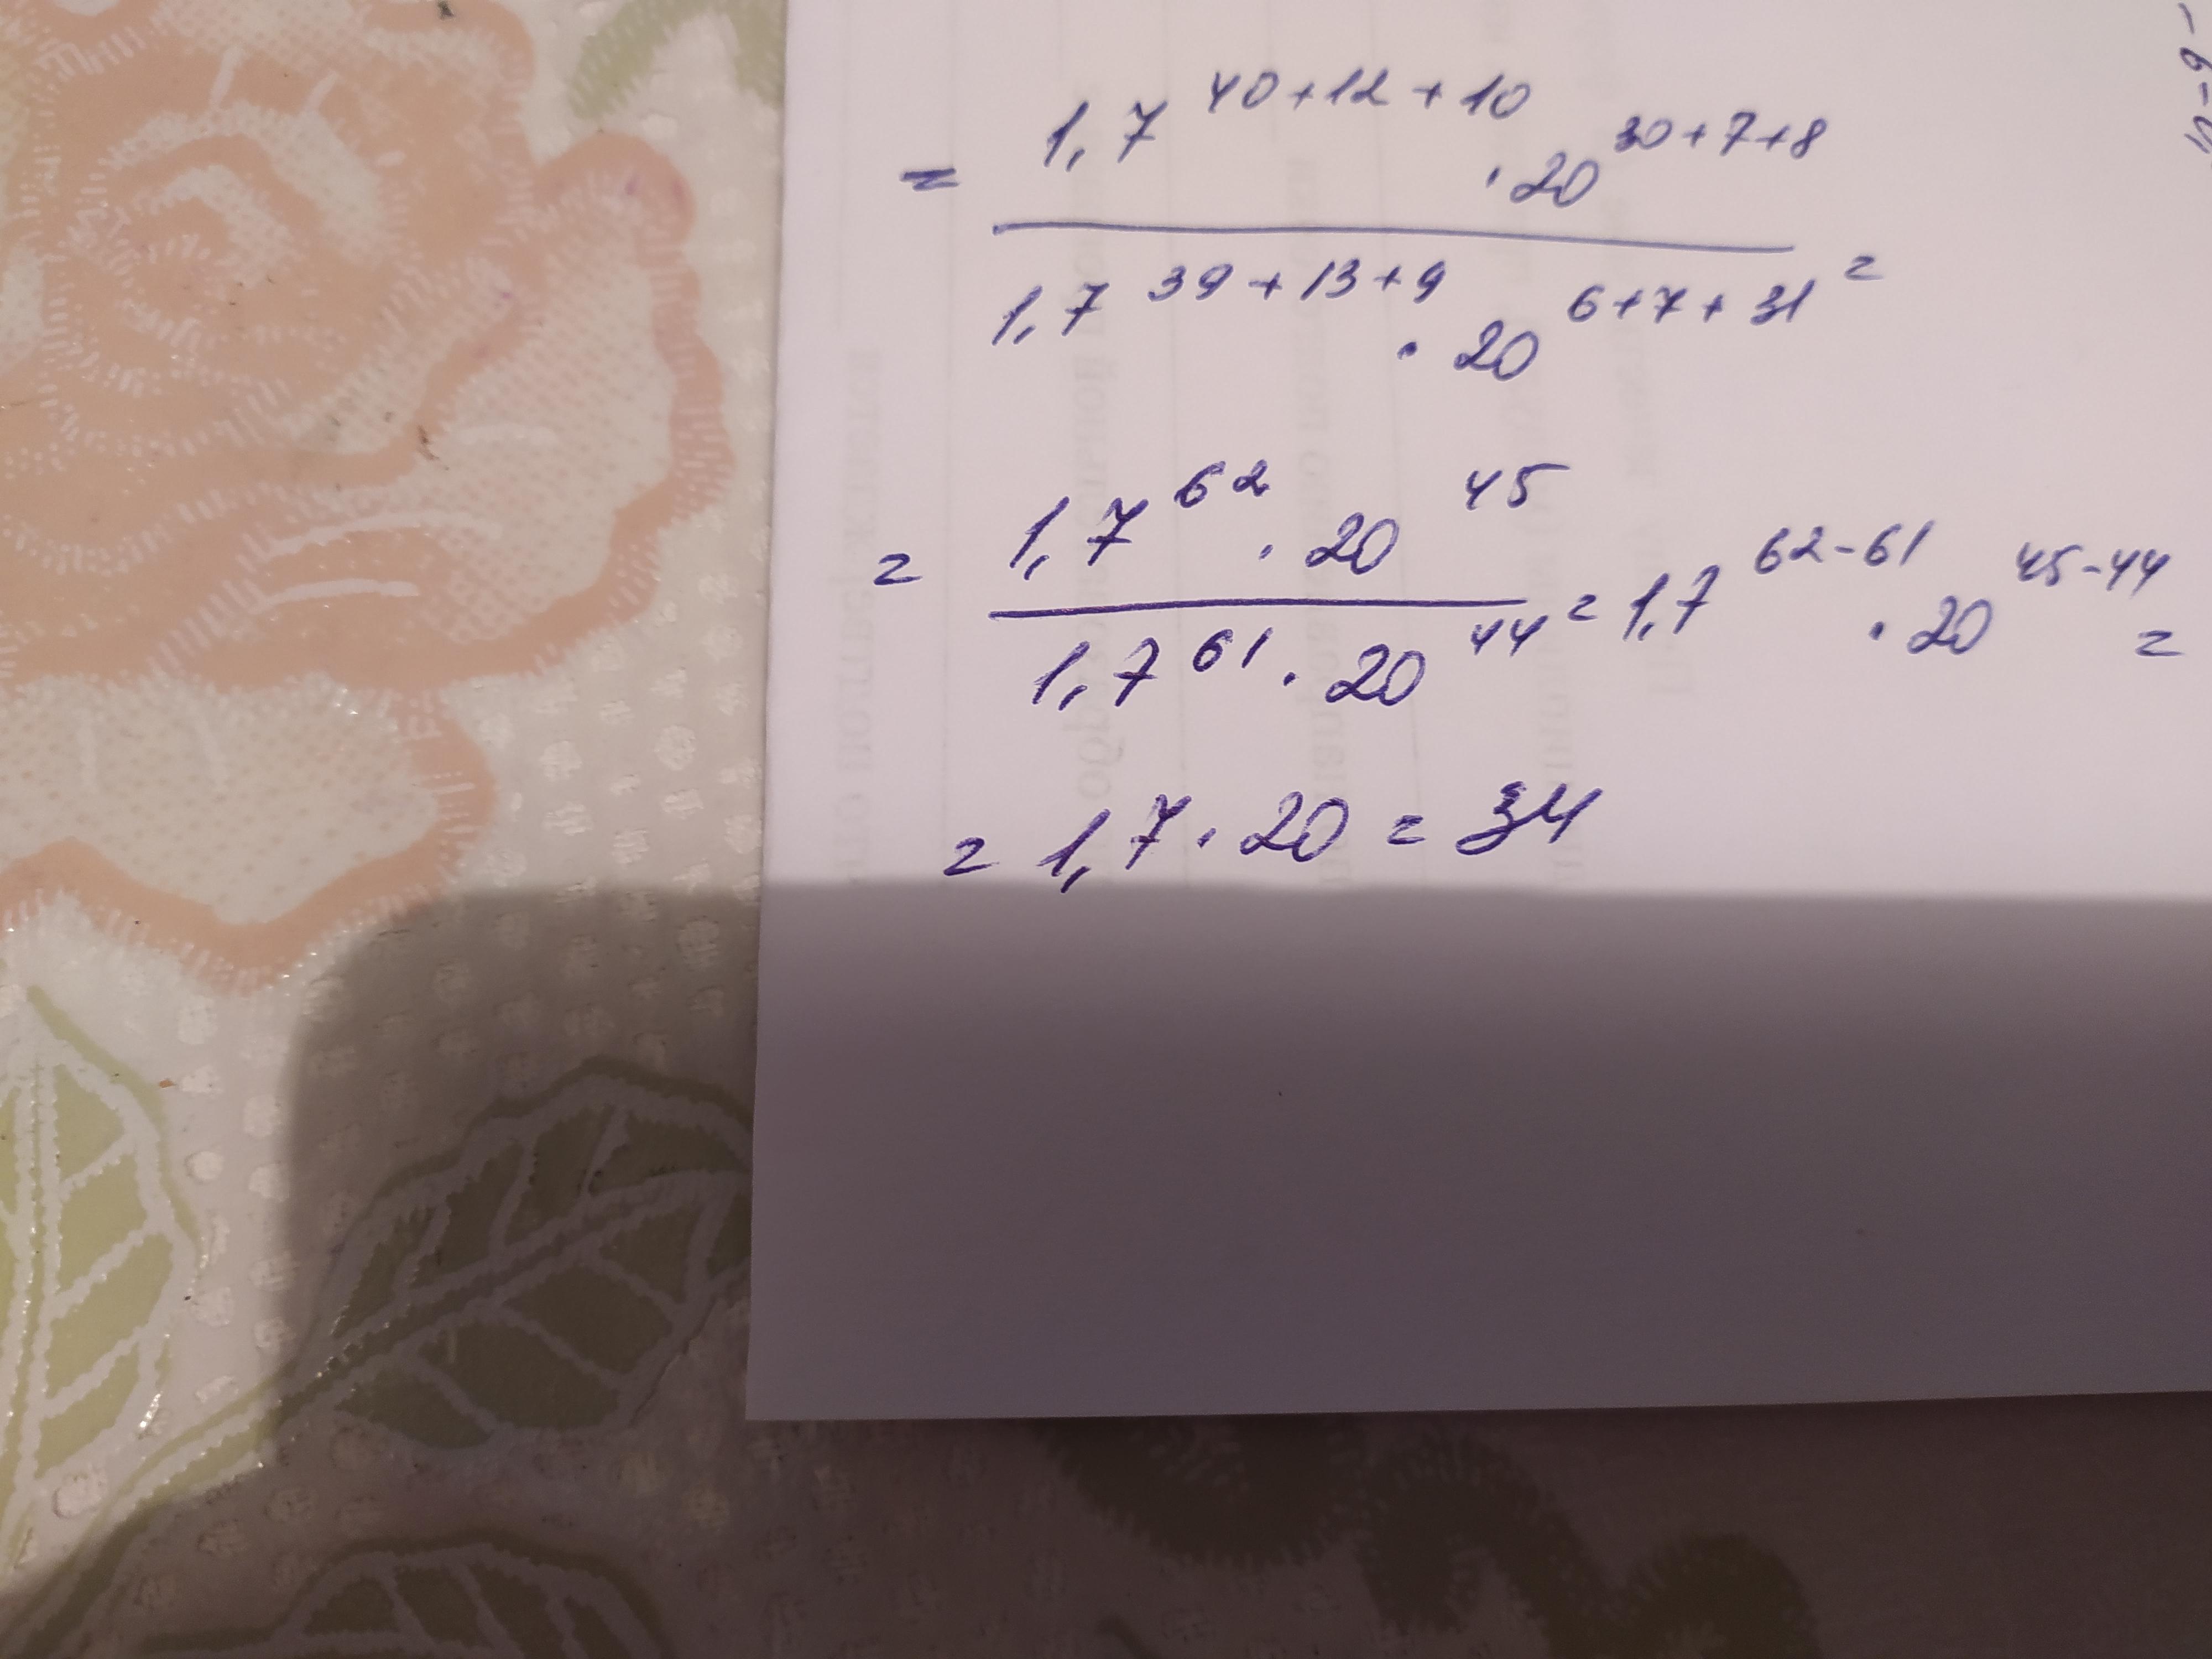 = 1,7^{40+12+10} · 20^{30+7+8}
1,7^{39+13+9} · 20^{6+7+31} =
= 1,7^{62} · 20^{45}
1,7^{61} · 20^{44} = 1,7^{62-61} · 20^{45-44} =
= 1,7 · 20 = 34